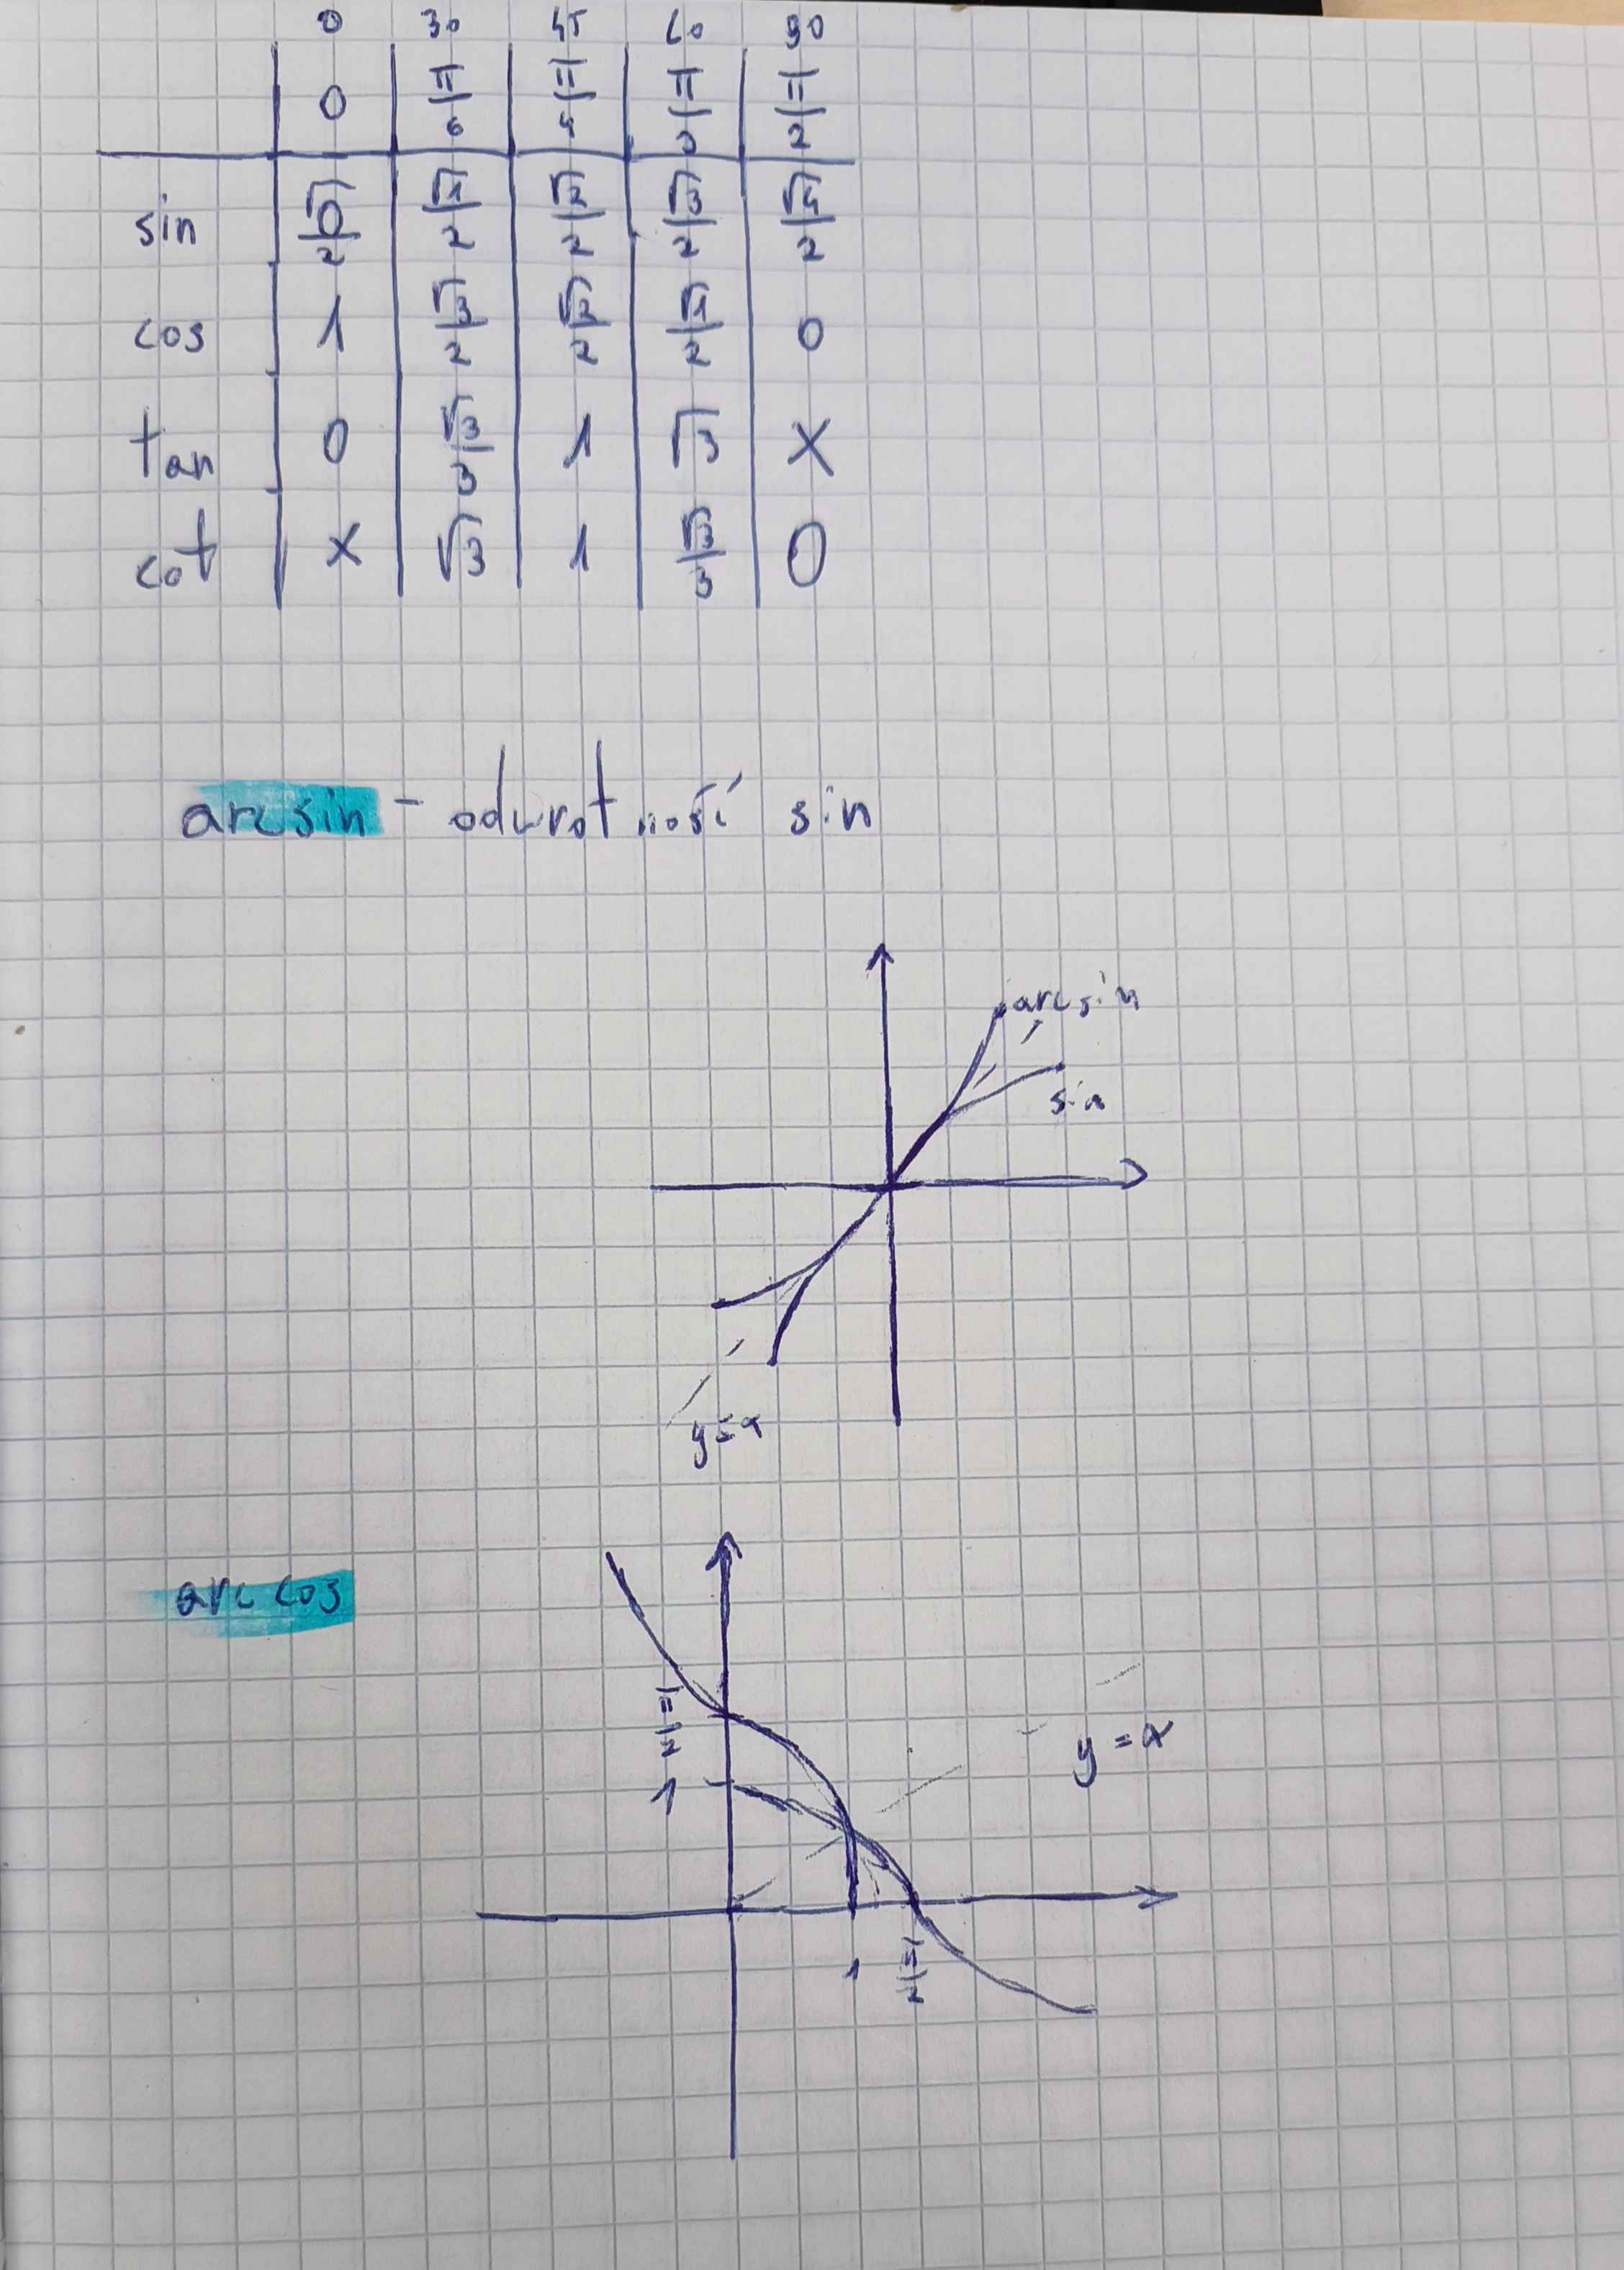 0 30 45 60 90
0 π/6 π/4 π/3 π/2
sin √0/2 √1/2 √2/2 √3/2 √4/2
cos 1 √3/2 √2/2 √1/2 0
tan 0 √3/3 1 √3 X
cot X √3 1 √3/3 0
arcsin - odwrotność sin
arcsin
sin
y=x
arc cos
π/2
y=x
1
1 π/2